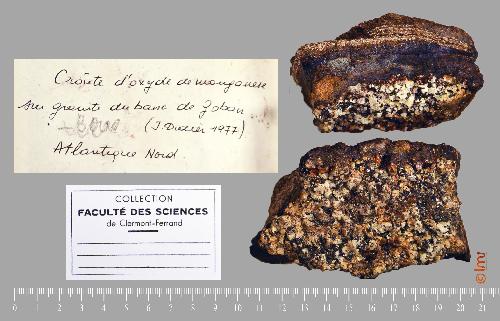 Croûte d'oxyde de manganèse
sur granite du banc de Goban
(J. Didier 1977)
Atlantique Nord
COLLECTION
FACULTÉ DES SCIENCES
de Clermont-Ferrand
© lmv
0 1 2 3 4 5 6 7 8 9 10 11 12 13 14 15 16 17 18 19 20 21